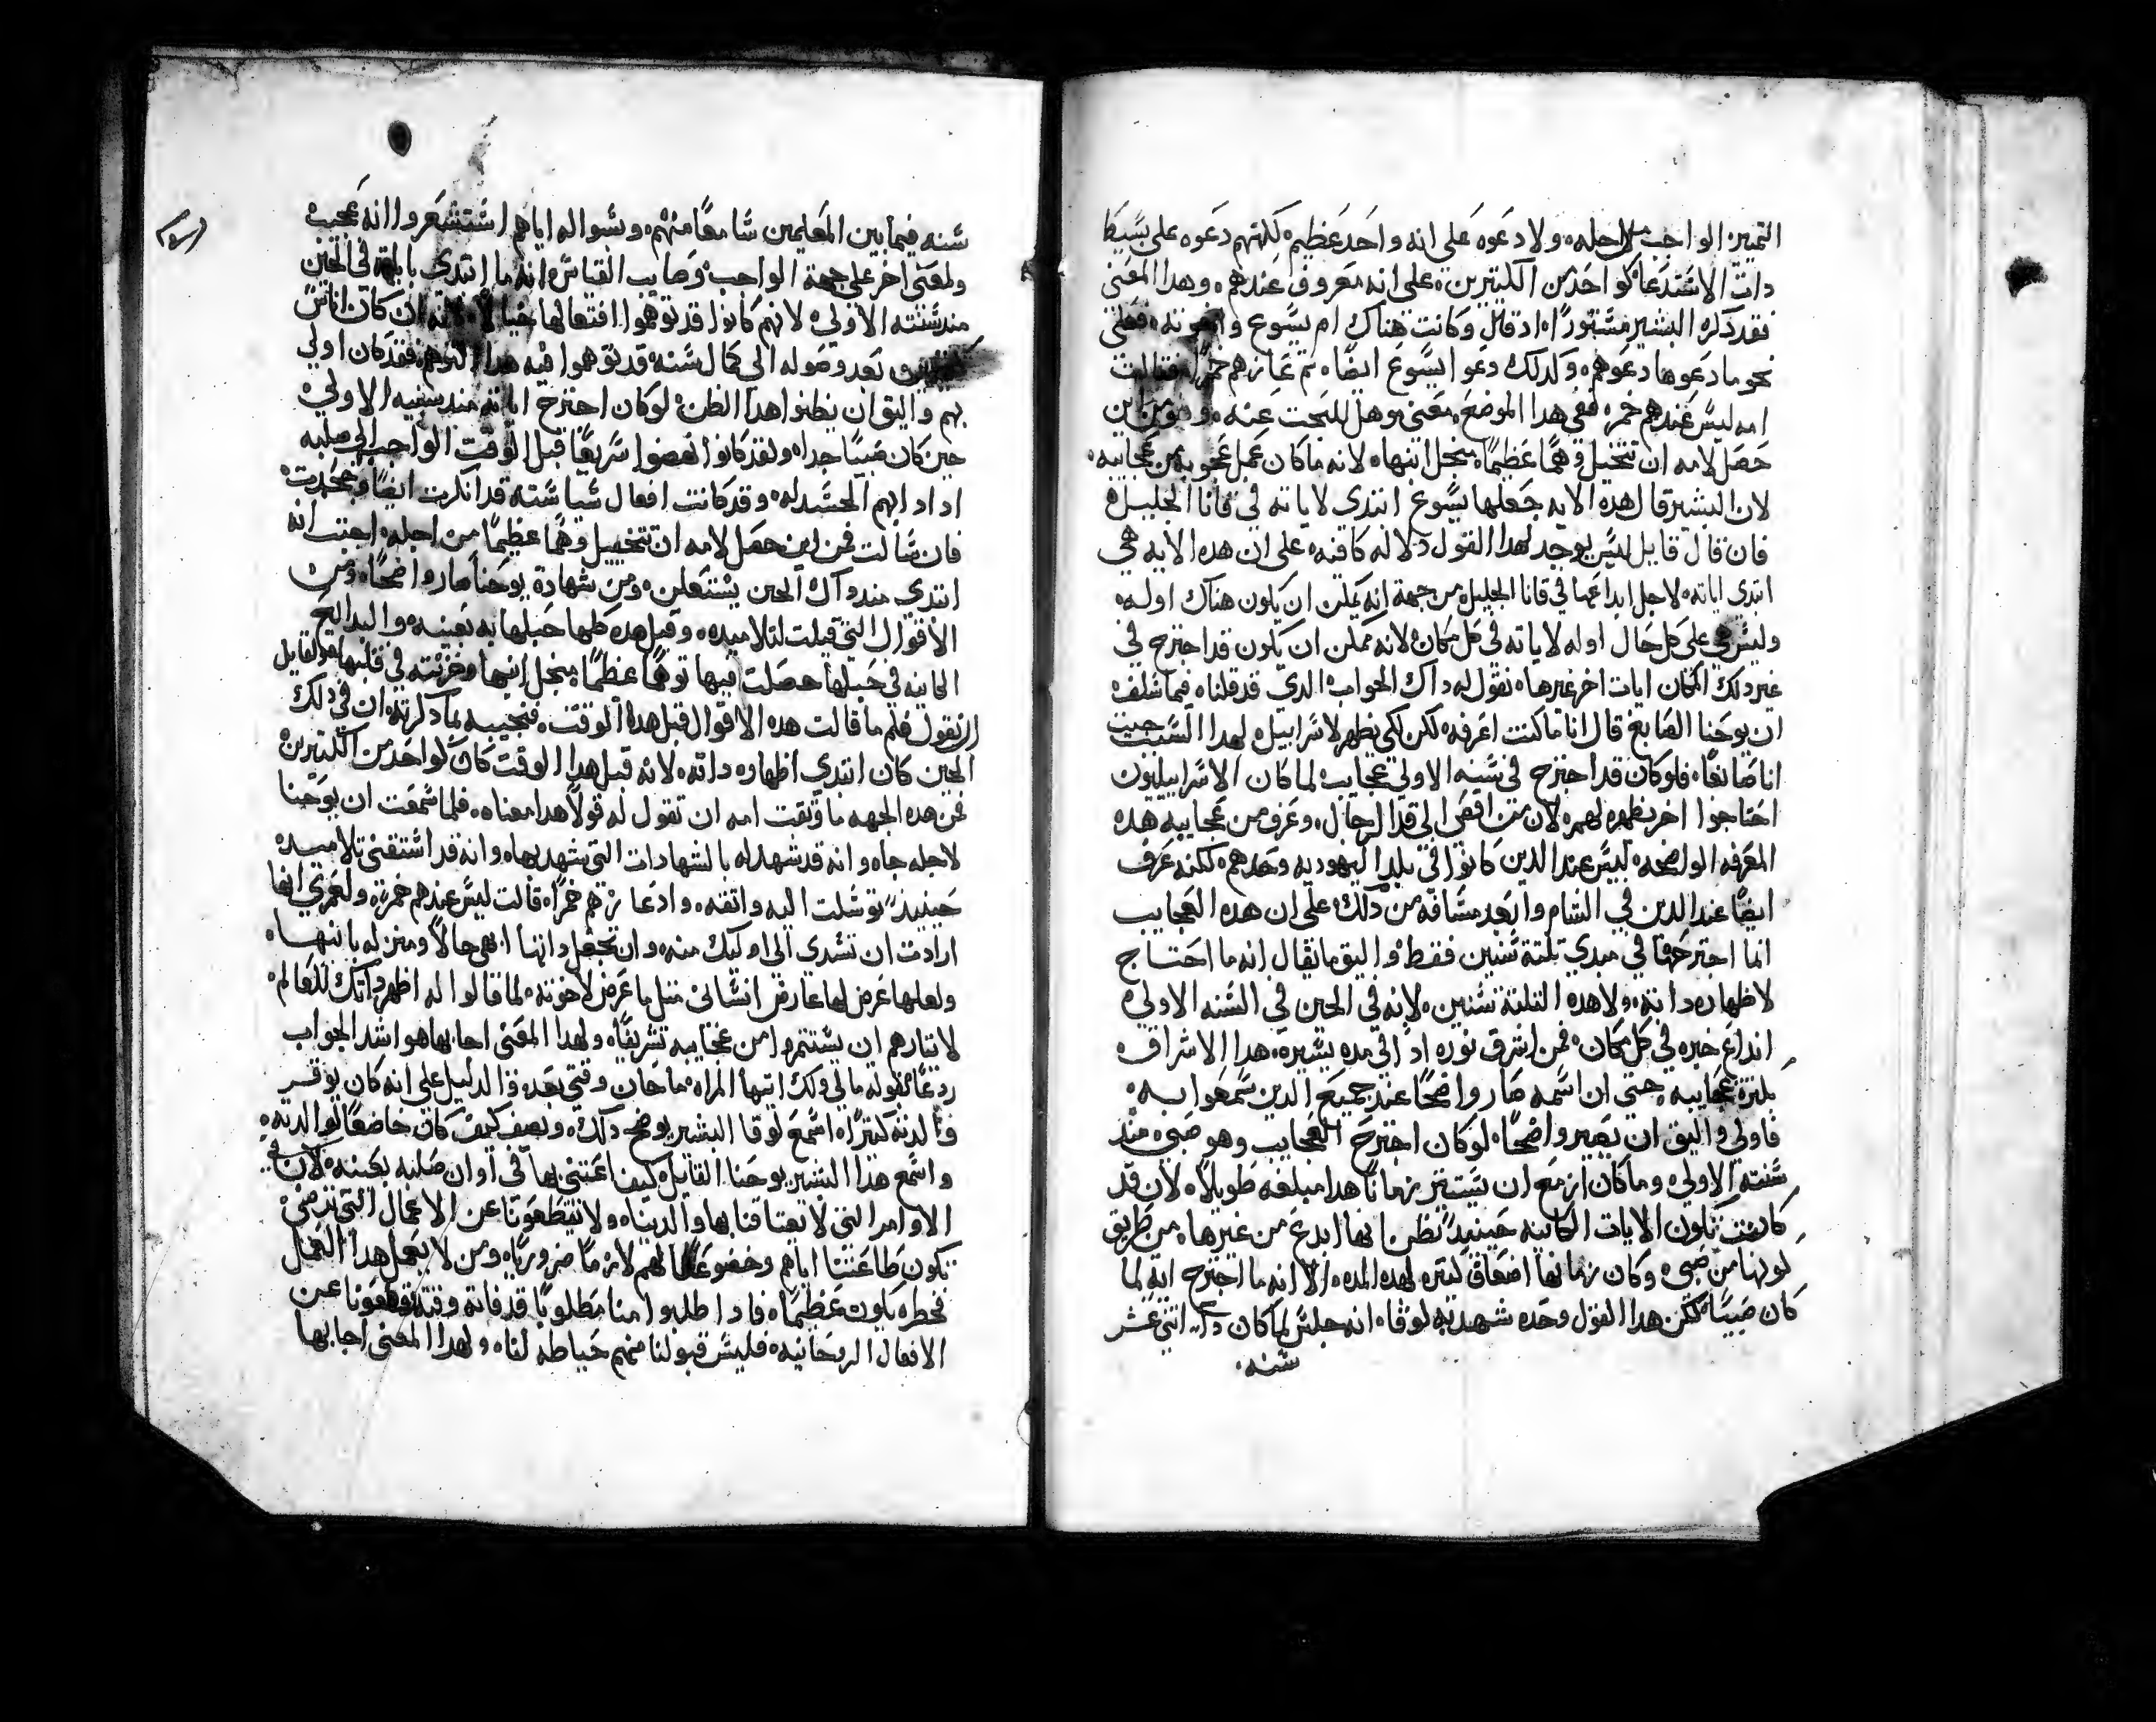 التمييز الواجب لاجله ولا دعوه على انه واحد عظيم لكنهم دعوه على بسيط
دات الاستدعا كواحد من الكتيرين على انه معروف عندهم وهدا المعنى
نقد دكره البشير مستورا اد قال وكانت هناك ام يسوع واخوته فعلى
نحو ما دعوها دعوهم وكدلك دعوا يسوع ايضا تم عازهم خمرا فقالت
امه ليس عندهم خمر ففي هدا الموضع معنى موهل للبحت عنه وهو من اين
حصل لامه ان تتخيل وهما عظيما منجل ابنها لانه ما كان عمل عجوبه من عجايبه
لان البشير قال هده الايه جعلها يسوع ابتدى لاياته في قانا الجليل
فان قال قايل ليس يوجد لهدا القول دلاله كافيه على ان هده الايه هي
ابتدى اياته لاجل ابداعها في قانا الجليل من جهة انه يمكن ان يكون هناك اوله
وليس هي على كل حال اوله لاياته في كل مكان لانه ممكن ان يكون قد اجترح في
غير دلك المكان ايات اخر غيرها نقول له داك الجواب الدي قد قلناه فيما سلف
ان يوحنا الصابغ قال انا ما كنت اعرفه لكن لكي يظهر لاسراييل لهدا السبب جيت
انا صابغا فلو كان قد اجترح في سنيه الاولي عجايب لما كان الاسراييليون
احتاجوا اخر يظهره لهم لان من افضى الي قد الرجال وعرف من عجايبه هده
المعرفه الواضحه ليس عند الدين كانوا في بلد اليهوديه وحدهم لكنه عرف
ايضا عند الدين في الشام وابعد مسافه من دلك على ان هده العجايب
انما اجترحها في مبدي تلتة سنين فقط واليق ما يقال انه ما احتاج
لاظهاره داته ولا هده التلتة سنين لانه في الحين في السنه الاولي
انداع خبره في كل مكان فمن اشرق نوره اد افي مده يسيره هدا الاشراق
بكترة عجايبه حتى ان اسمه صار واضحا عند جميع الدين سمعوا به
فاولي واليق ان يصير واضحا لو كان اجترح العجايب وهو صبي مند
سنته الاولي وما كان ازمع ان يستتر زمانا هدا مبلغه طويلا لان قد
كانت تكون الايات الكاينه حينيد تظن انها ابدع من غيرها من طريق
كونها من صبي وكان زمانها اضعاف كتيره لهده المده الا انه ما اجترح ايه لما
كان صبيا لكن هدا القول وحده شهد به لوقا انه جلس لما كان دا اتني عشر
سنه
سنه فيما بين المعلمين سامعا منهم وبسواله اياهم استشعروا انه عجيب
ولمعنى اخر على جهة الواجب وصايب القياس انه ما ابتدى باياته في الحين
مند سنته الاولي لانهم كانوا قد توهموا افتعالها خيالا لانه ان كان اناس
كتيرون بعد وصوله الي كمال سنه قد توهموا فيه هدا التوهم فقد كان اولي
بهم واليق ان يظنوا هدا الظن لو كان اجترح اياته مند سنيه الاولي
حين كان صبيا جدا ولقد كانوا نهضوا سريعا قبل الوقت الواجب الي صلبه
اد ادابهم الحسد له وقد كانت افعال سياسته قد انكرت ايضا وجحدت
فان سالت فمن اين حصل لامه ان تتخيل وهما عظيما من اجله اجبت انه
ابتدى مند داك الحين يستعلن ومن شهادة يوحنا صار واضحا ومن
الاقوال التي قيلت لتلاميده وقبل هده كلها حبلها به بعينه والبدايع
الكاينه في حبلها حصلت فيها توهما عظيما منجل ابنها وخزنته في قلبها فلقايل
ان يقول فلم ما قالت هده الاقوال قبل هدا الوقت فنجيبه بما دكرته ان في دلك
الحين كان ابتدي اظهاره داته لانه قبل هدا الوقت كان كواحد من الكتيرين
فمن هده الجهه ما وتقت امه ان تقول له قولا هدا معناه فلما سمعت ان يوحنا
لاجله جا وانه قد شهد له بالشهادات التي شهد بها وانه قد استقنى تلاميده
حينيد توسلت اليه واتقه وادعازهم خمرا قالت ليس عندهم خمرة ولعمري انها
ارادت ان تسدى الى اوليك منه وان تجعل داتها ابهى حالا ومنزله بابنها
ولعلها عرض لها عارض انساني متل ما عرض لاخوته لما قالوا له اظهر داتك للعالم
لايتارهم ان يستتمروا من عجايبه تشريفا ولهدا المعنى اجابها هو اشد الجواب
ردعا بقوله ما لي ولك ايتها المراه ما حان وقتي بعد والدليل على انه كان يوقر
والدته كتيرا اسمع لوقا البشير يوضح دلك ويصف كيف كان خاضعا لوالديه
واسمع هدا البشير يوحنا القايل كيف اعتنى بها في اوان صلبه بعينه لان في
الاوامر التي لا يعتاقنا بها والدينا ولا يقطعونا عن الاعمال التي ترضي
تكون طاعتنا اياهم وخضوعنا لهم لازما ضروريا ومن لا يعمل هدا العمل
فخطره يكون عظيما فادا طلبوا منا مطلوبا قد فاته وقته وقطعونا عن
الافعال الروحانيه فليس قبولنا منهم حياطه لنا ولهدا المعنى اجابها